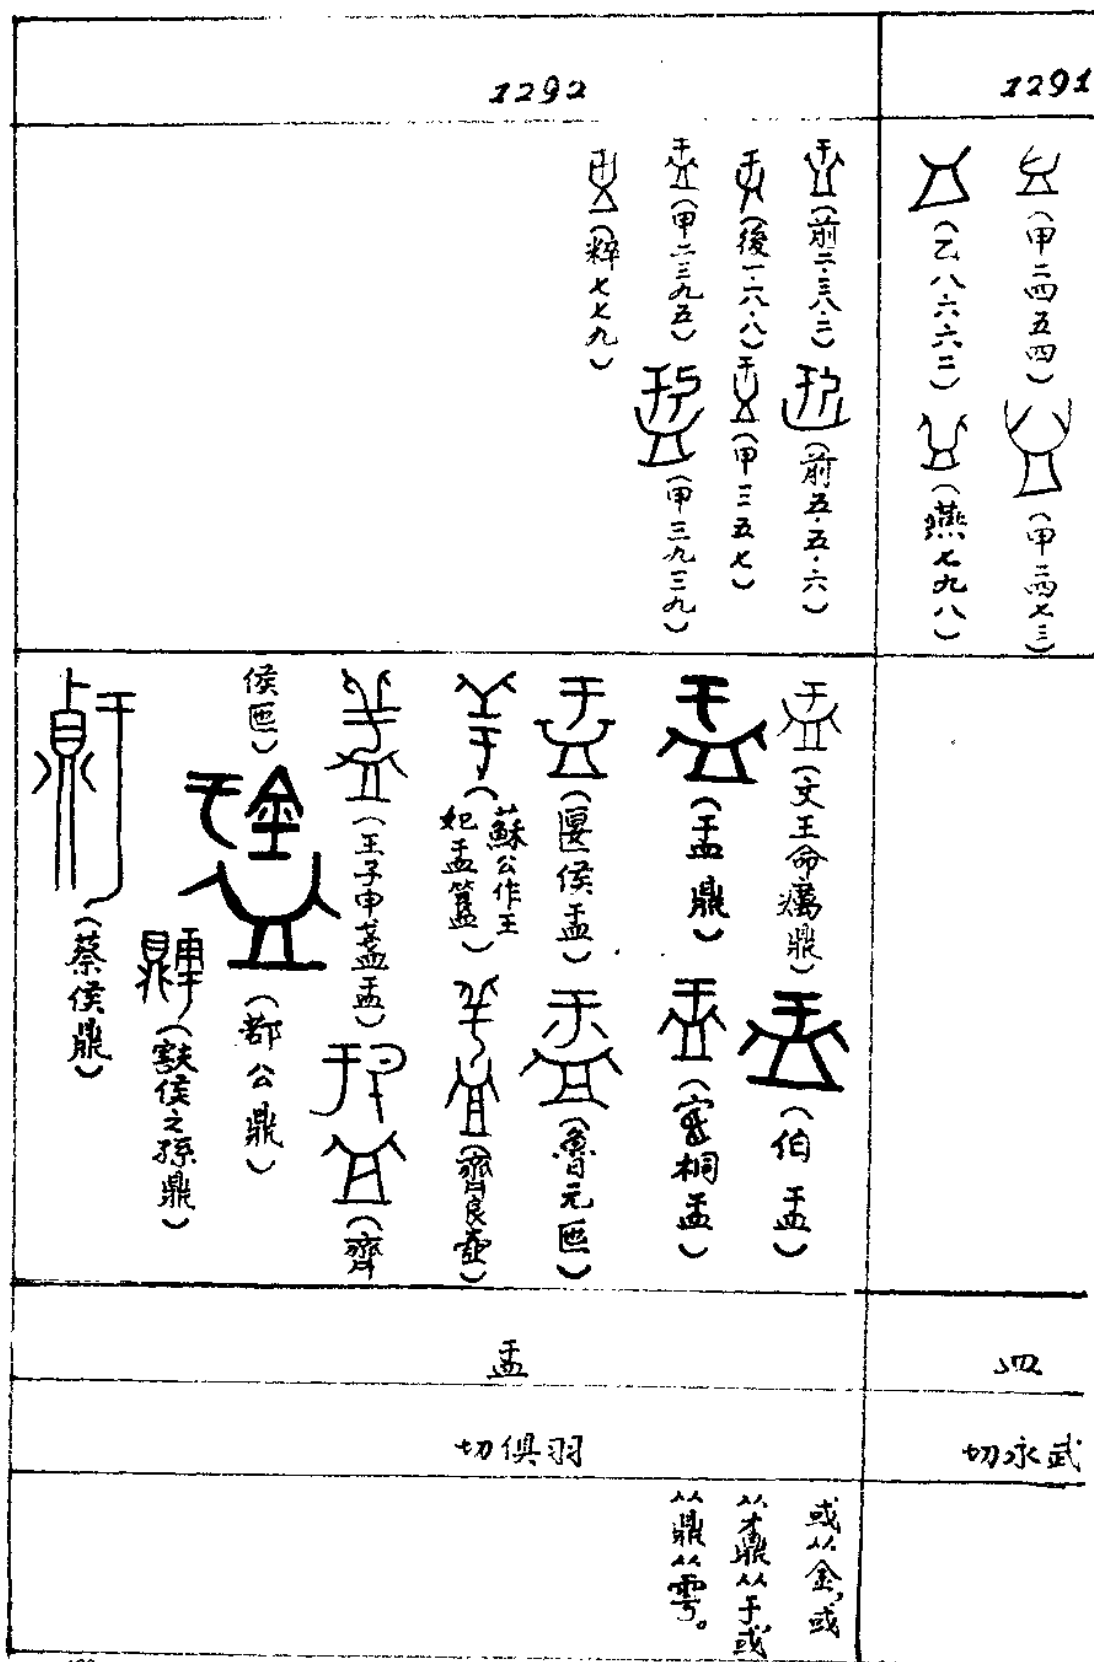 1291
(甲二四五四)
(甲二四七三)
(乙八六六二)
(燕七九八)
皿
武永切
1292
(前二·三八·二)
(前五·五·六)
(後一·六·八)
(甲二五七)
(甲二三九五)
(甲三九三九)
(粹七七九)
(文王命癘鼎)
(伯盂)
(盂鼎)
(宻桐盂)
(匽侯盂)
(魯元匜)
(蘇公作王
妃盂簋)
(齊良壺)
(王子申盞盂)
(齊
侯匜)
(都公鼎)
(㝬侯之孫鼎)
(蔡侯鼎)
盂
羽俱切
或从金,或
从鼎从于或
从鼎从雩。